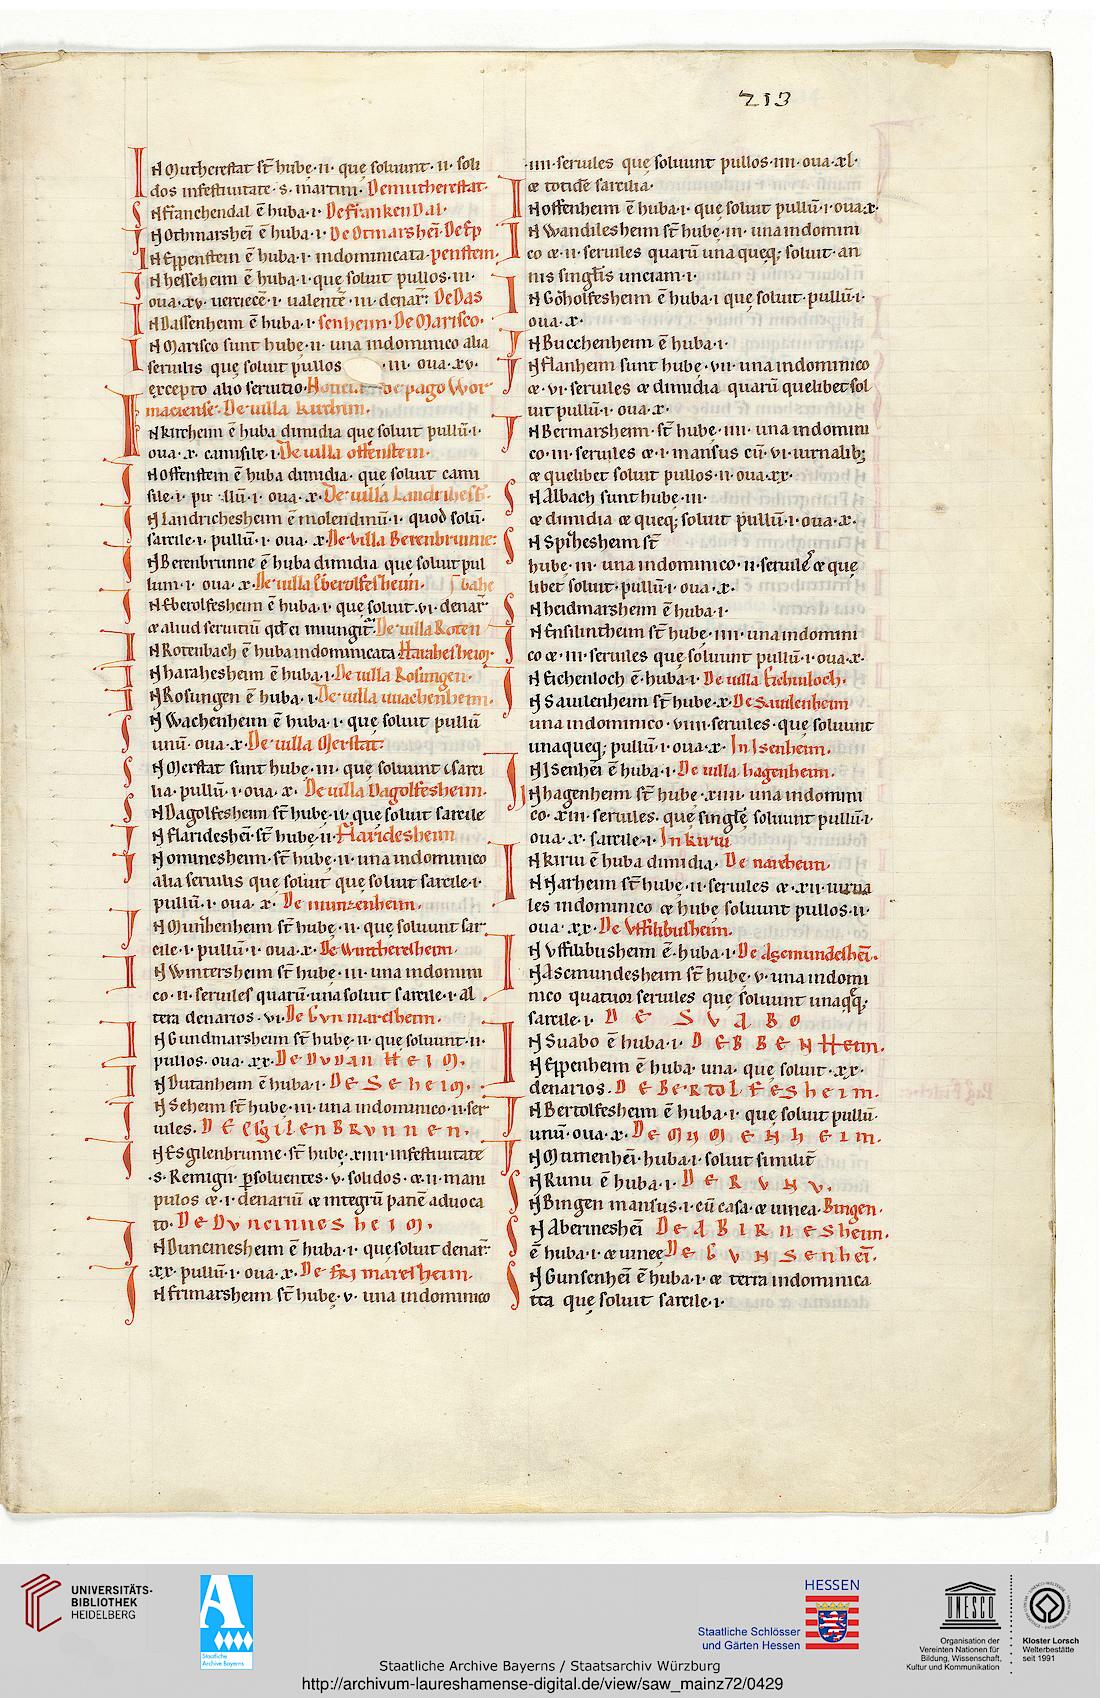 213
IN Mutherestat st̄ hubę·ii· quę soluunt·ii· soli
dos infestiuitate·s·martini· De mutherestat·
IN franchendal ē huba·i· De franken Dal·
IN Othmarshei̅ ē huba·i· De Otmarshei̅· De Ep
IN Eppenstein ē huba·i· indominicata· penstein·
IN hesseheim ē huba·i· que soluit pullos·iii·
oua·xv· i· ualente̅·iii·denar̄: De Das
IN Dassenheim ē huba·i· senheim· De Marisco·
IN Marisco sunt hubę·ii· una indominico alia
seruilis quę soluit pullos ·iii· oua·xv·
excepto alio seruitio· de pago Wor
maciense· De uilla kircheim·
IN kircheim ē huba dimidia quę soluit pullū·i·
oua·x· camisile·i· De uilla offenstein·
IN offenstein ē huba dimidia· quę soluit cami
sile·i· pu llū·i· oua·x· De uilla Landrihesh̄·
IN Landrichesheim ē molendinū·i· quod solū·
sarcile·i· pullū·i· oua·x· De uilla Berenbrunne:
IN Berenbrunne ē huba dimidia que soluit pul
lum·i· oua·x· De uilla Eberolfesheim· bahc
IN Eberolfesheim ē huba·i· quę soluit·vi·denar̄
æ aliud seruitiū qd̄ ei iniungit̄· De uilla Roten
IN Rotenbach ē huba indominicata Harahesheim·
IN harahesheim ē huba·i· De uilla Rosungen·
IN Rosungen ē huba·i· De uilla uuachenheim·
IN Wachenheim ē huba·i· quę soluit pullū
unū· oua·x· De uilla Merstat·
IN Merstat sunt hubę·iii· quę soluunt i sarci
lia· pullū·i· oua·x· De uilla Dagolfesheim·
IN Dagolfesheim st̄ hubę·ii· quę soluit sarcile
IN flarideshei̅· st̄ hubę·ii· Flaridesheim
IN ominesheim· st̄ hubę·ii· una indominico
alia seruilis quę soluit quę soluit sarcile·i·
pullū·i· oua·x· De munzenheim·
IN Munihenheim st̄ hubę·ii· quę soluunt sar
cile·i· pullū·i· oua·x· De wintheresheim·
IN Wintersheim st̄ hubę·iii· una indomini
co·ii· seruiles quarū una soluit sarcile·i· al
tera denarios·vi· De Gunmaresheim·
IN Gundmarsheim st̄ hubę·ii· quę soluunt·ii·
pullos·oua·xx· De Duuanheim·
IN Dutanheim ē huba·i· De Seheim·
IN Seheim st̄ hubę·iii· una indominico·ii·ser
uiles· De Esgilenbrunnen·
IN Esgilenbrunne·st̄ hubę·xiiii· infestiuitate
·s·Remigii p̄soluentes·v·solidos·æ·ii·mani
pulos æ·i·denariū æ integrū panē aduoca
to· De Duncinnesheim·
IN Duncinesheim ē huba·i· que soluit denar̄:
xx· pullū·i· oua·x· De frimaresheim·
IN frimarsheim st̄ hubę·v· una indominico
·iiii·seruiles quę soluunt pullos·iiii·oua·xl·
æ totidē sarcilia·
IN offenheim ē huba·i· quę soluit pullū·i·oua·x·
IN Wandilesheim st̄ hubę·iii· una indomini
co æ·ii·seruiles quarū una queq; soluit·an
nis singlis unciam·i·
IN Göholfesheim ē huba·i quę soluit·pullū·i·
oua·x·
IN Bucchenheim ē huba·i·
IN flanheim st̄ hubę·vii· una indominico
æ·vi·seruiles æ dimidia quarū quelibet sol
uit pullū·i· oua·x·
IN Bermarsheim·st̄ hubę·iiii· una indomini
co·iii·seruiles æ·i·mansus cū·vi·iurnalib;
æ quelibet soluit pullos·ii·oua·xx·
IN Albach sunt hubę·iii·
æ dimidia æ queq; soluit pullū·i·oua·x·
IN Spihesheim st̄
hubę·iii· una indominico·ii·seruile æ que
libet soluit· pullū·i·oua·x·
IN heidmarsheim ē huba·i·
IN Ensilintheim st̄ hubę·iiii· una indomini
co æ·iii·seruiles quę soluunt pullū·i·oua·x·
IN Eichenloch ē·huba·i· De uilla Eichinloch·
IN Sauulenheim st̄ hubę·x· De Sauulenheim
una indominico·viiii·seruiles·quę soluunt
unaqueq; pullū·i·oua·x· In Isenheim·
IN Isenhei̅ ē huba·i· De uilla hagenheim·
IN hagenheim st̄ hubę·xiiii· una indomini
co·xiii·seruiles·quę singlę soluunt pullū·i·
oua·x·sarcile·i· In kiriu
IN kiriu ē huba dimidia· De narheim·
IN Narheim st̄ hubę·ii·seruiles æ·xii·iurna
les indominico æ hubę soluunt pullos·ii·
oua·xx· De Vffilibusheim·
IN Vffilibusheim ē·huba·i· De Asemundeshei̅·
IN Asemundesheim st̄ hubę·v·una indomi
nico quatuor seruiles quę soluunt unaqq̄;
sarcile·i· De Suabo
IN Suabo ē huba·i· De Bbenheim·
IN Eppenheim ē huba·una·quę soluit·xx·
denarios· De Bertolfesheim·
IN Bertolfesheim ē huba·i· quę soluit pullū·
unū·oua·x· De Mumenheim·
IN Mumenhei̅·huba·i· soluit similit̄
IN Runu ē huba·i· De Runu·
IN Bingen mansus·i·cū casa·æ uinea· Bingen·
IN Abermeshei̅ De Abirnesheim·
ē huba·i·æ uineę De Gunsenhei̅·
IN Gunsenhei̅ ē huba·i·æ terra indominica
tta quę soluit sarcile·i·
UNIVERSITÄTS-
BIBLIOTHEK
HEIDELBERG
Staatliche
Archive Bayerns
HESSEN
Staatliche Schlösser
und Gärten Hessen
UNESCO
Organisation der
Vereinten Nationen für
Bildung, Wissenschaft,
Kultur und Kommunikation
Kloster Lorsch
Welterbestätte
seit 1991
Staatliche Archive Bayerns / Staatsarchiv Würzburg
http://archivum-laureshamense-digital.de/view/saw_mainz72/0429